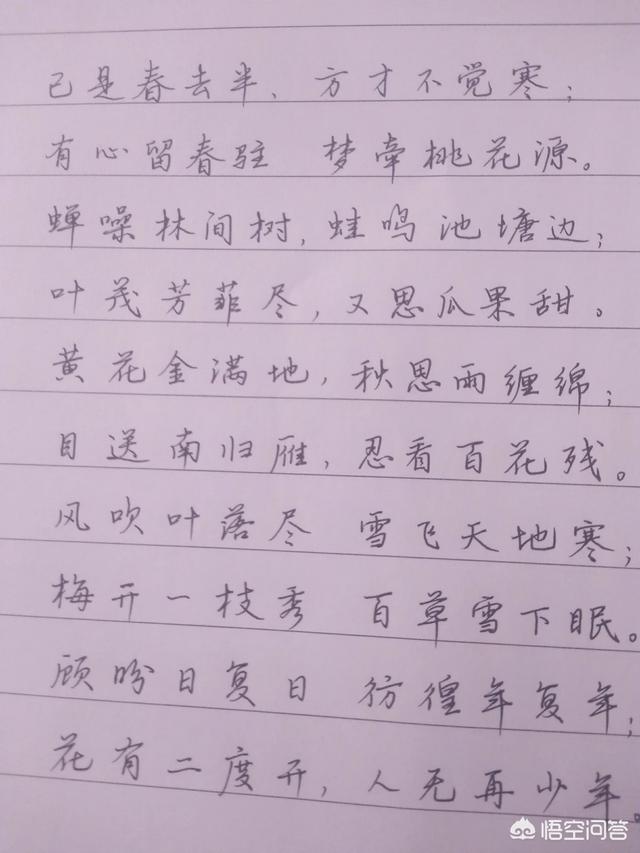 已是春去半、方才不觉寒；
有心留春驻 梦牵桃花源。
蝉噪林间树，蛙鸣池塘边；
叶茂芳菲尽，又思瓜果甜。
黄花金满地，秋思雨缠绵；
目送南归雁，忍看百花残。
风吹叶落尽 雪飞天地寒；
梅开一枝秀 百草雪下眠。
顾盼日复日 彷徨年复年；
花有二度开，人无再少年。
悟空问答